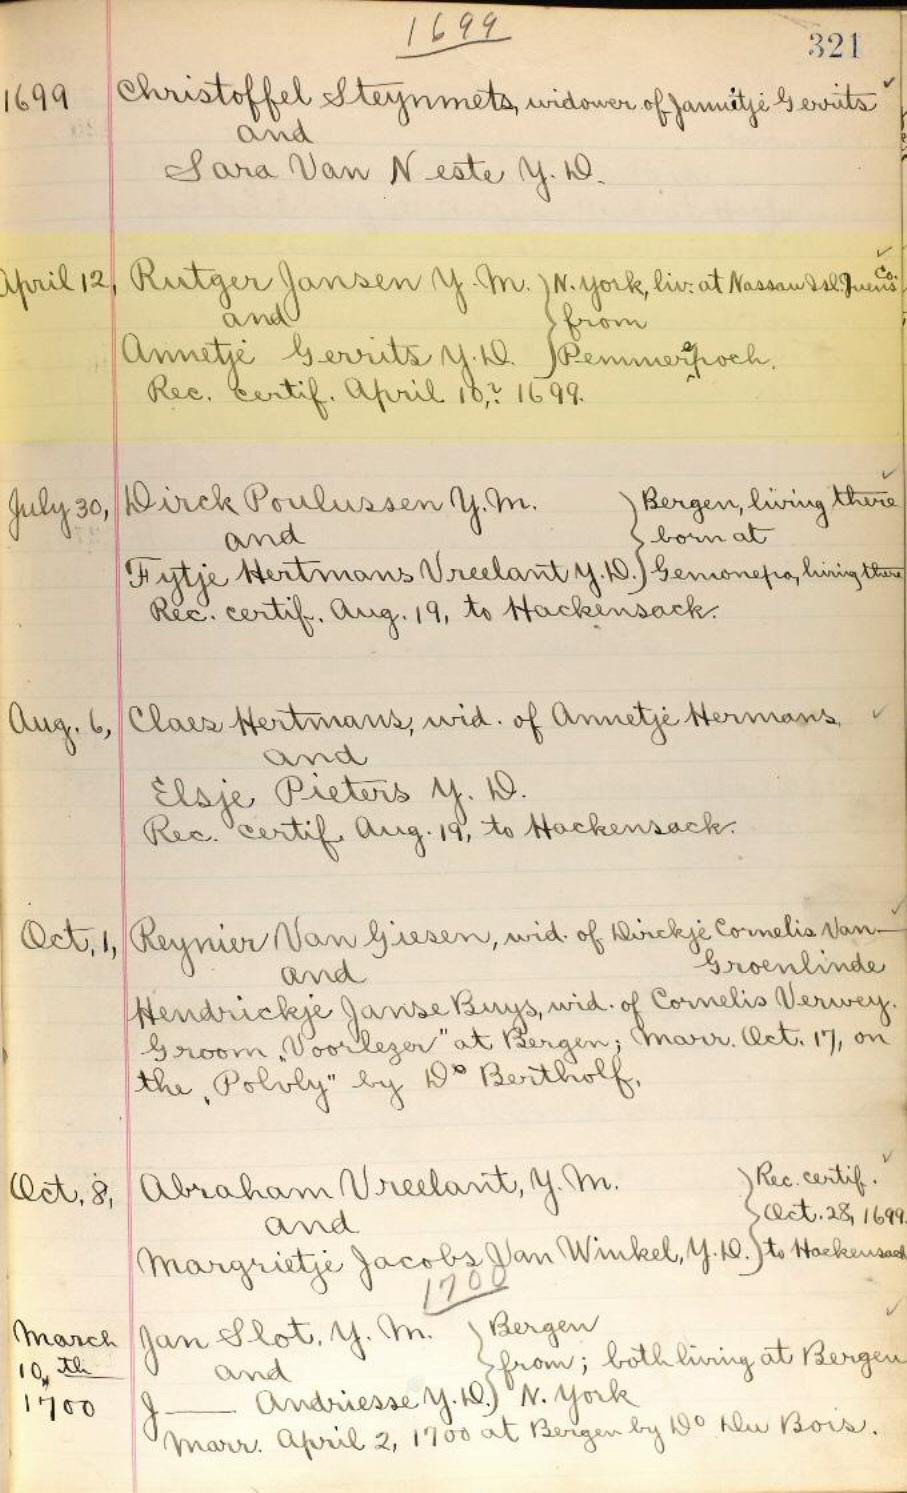 1699
321
1699 Christoffel Steynmets, widower of Jannitje Gerrits
and
Sara Van Neste Y. D.
April 12, Rutger Jansen Y. M. } N. York, liv: at Nassau Isl. Quens Co.
and } from
Annetje Gerrits Y. D. } Pemmerepoch.
Rec. certif. April 10,? 1699.
July 30, Dirck Poulussen Y. M. } Bergen, living there
and } born at
Fytje Hertmans Vreelant Y. D. } Gemonepa, living there
Rec. certif. Aug. 19, to Hackensack.
Aug. 6, Claes Hertmans, wid. of Annetje Hermans
and
Elsje Pieters Y. D.
Rec. certif. Aug. 19, to Hackensack.
Oct. 1, Reynier Van Giesen, wid. of Dirckje Cornelis Van
and Groenlinde
Hendrickje Janse Buys, wid. of Cornelis Verwey.
Groom „Voorlezer" at Bergen; Marr. Oct. 17, on
the „Polvly" by Do Bertholf.
Oct. 8, Abraham Vreelant, Y. M. } Rec. certif.
and } Oct. 28, 1699
Margrietje Jacobs Van Winkel, Y. D. } to Hackensack
1700
March Jan Slot, Y. M. } Bergen
10th and } from; both living at Bergen
1700 J—— Andriesse Y. D. } N. York
Marr. April 2, 1700 at Bergen by Do Du Bois.